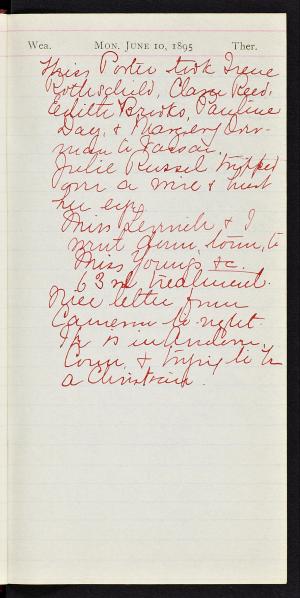 Wea. MON. JUNE 10, 1895 Ther.
Miss Porter took Irene
Rothschild, Clara Reed,
Edith Brooks, Pauline
Day, & Margery
to Vassar.
Julie Russel tripped
over a wire & hurt
her eye.
Miss & I
went down town, to
Miss Youngs &c.
63rd treatment.
Nice letter from
Cameron to-night.
He is in
Conn. & trying to be
a Christian.